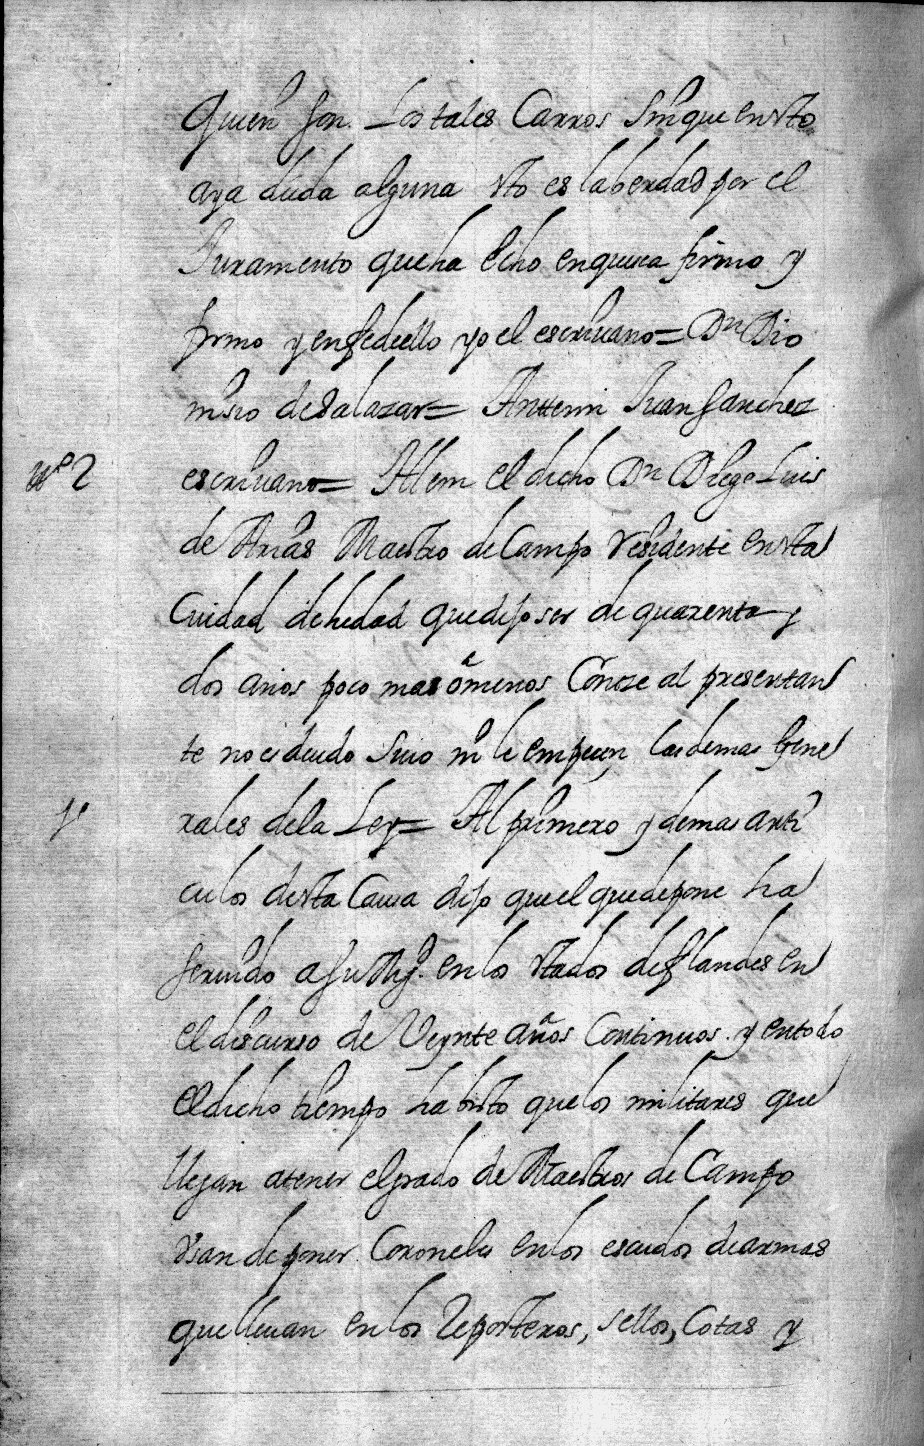 quien son. Los tales Carros sin que en sto
aya duda alguna sto es la berdad por el
Juramento que ha echo en que se afirmo y
firmo y en fe de ello yo el escriuano = Dn Dio
nisio de Salazar = Antemi Juan Sanchez
nº 2
escriuano = Allem el dicho Dn Diego Luis
de Arias Maestro de Campo residente en sta
Ciudad de hedad que dijo ser de quarenta y
dos años poco mas o menos Conoze al presentan
te no es deudo suio ni le empecen las demas Gene
1º
rales de la Ley = Al primero y demas arti
culos de sta Causa dijo que el que depone ha
seruido a su Mg. en los stados de flandes en
el discurso de Veynte años Continuos. y en todo
el dicho tiempo ha bisto que los militares que
llegan a tener el grado de Maestros de Campo
vsan de poner Coroneles en los escudos de armas
que lleuan en los Reposteros, sellos, Cotas y